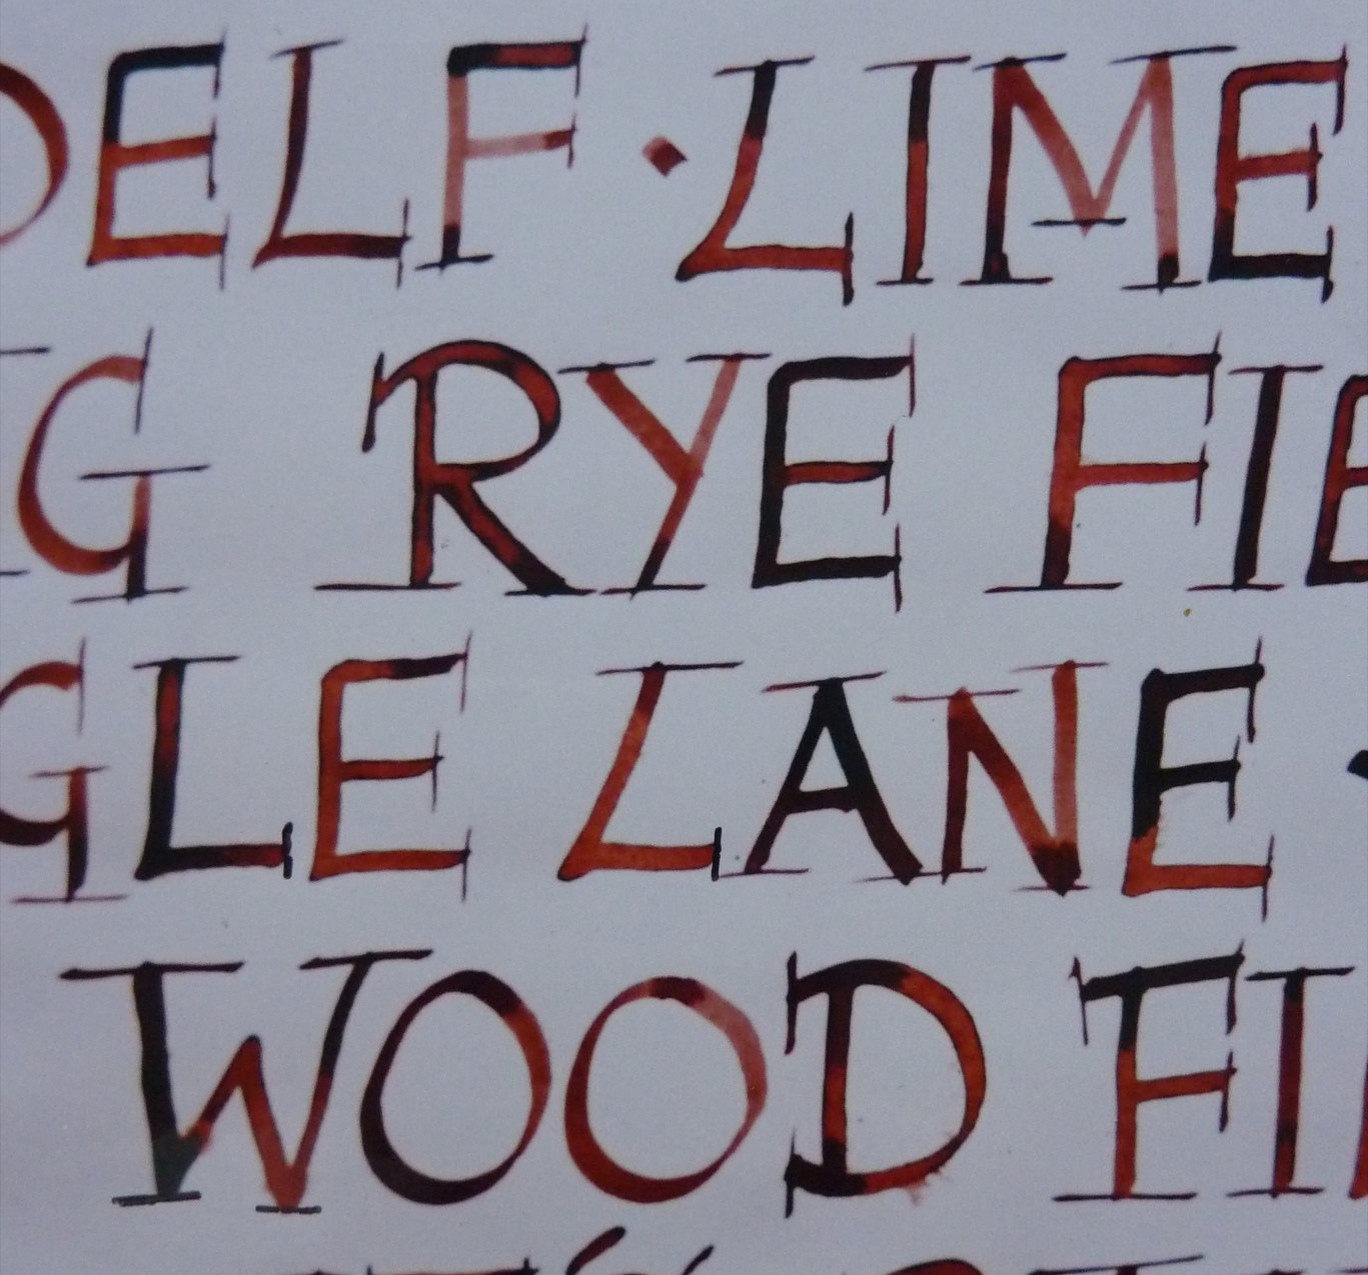 DELF · LIME
G RYE FIE
GLE LANE ·
WOOD FI